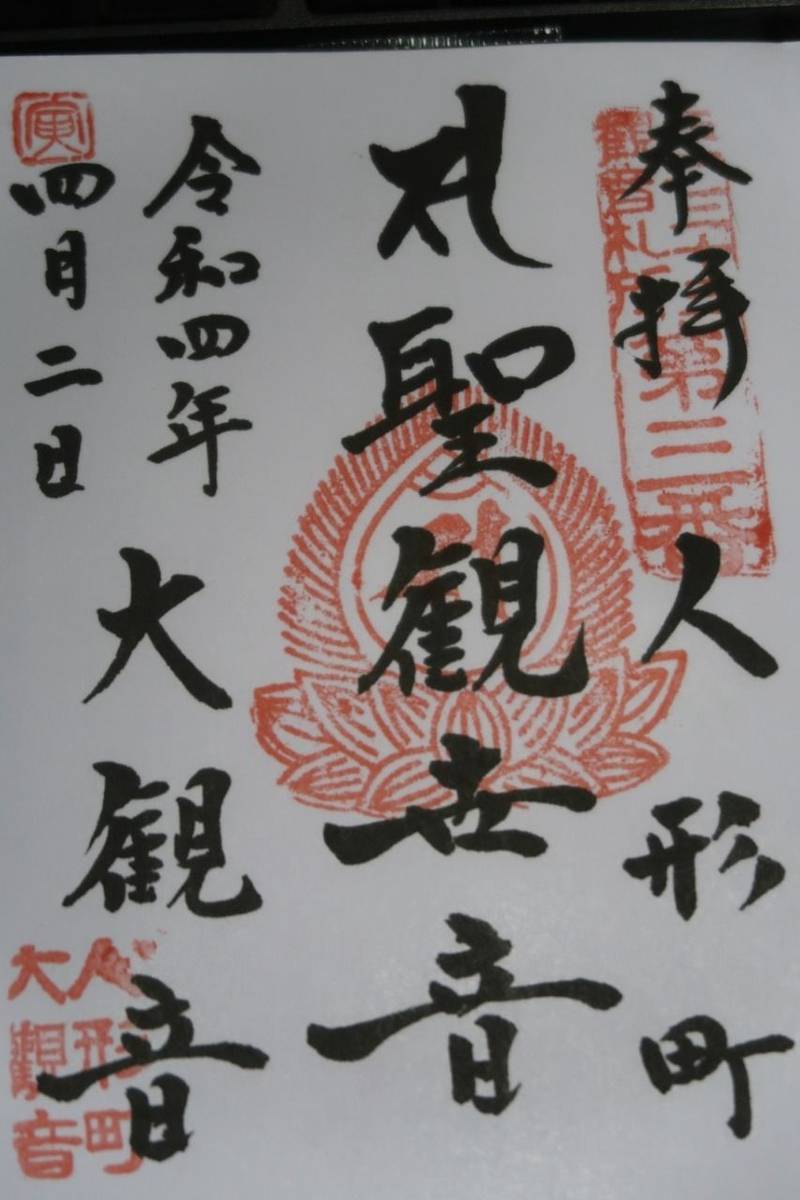 奉拝
人形町
觀音札所
第三番
聖観世音
令和四年
四月二日
大観音
寅
人形町
大觀音